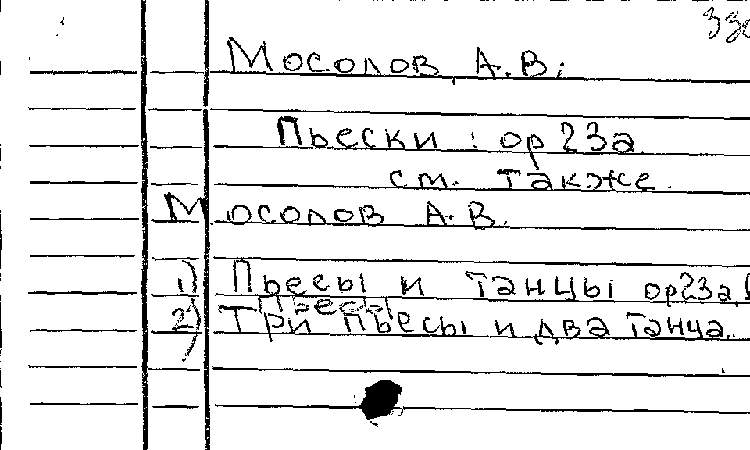 330
Мосолов, А.В.
Пьески : ор 23а
см. также
Мосолов А.В.
1) Пьесы и танцы ор23а
2) Три пьесы и два танца.